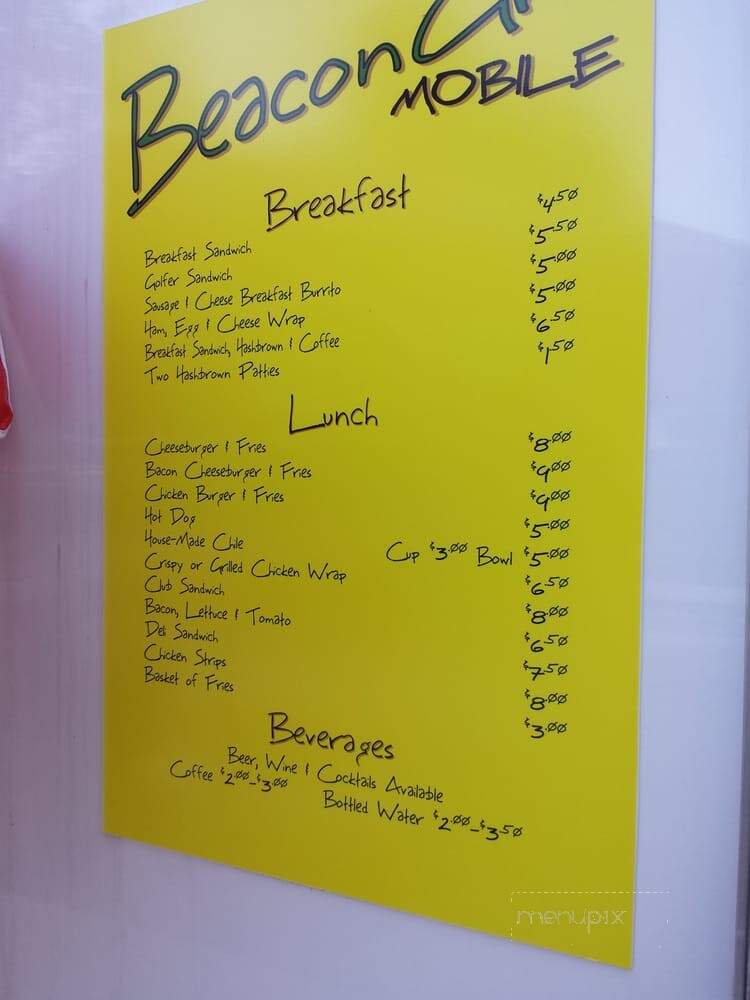 Beacon G
MOBILE
Breakfast
Breakfast Sandwich $4.50
Golfer Sandwich $5.50
Sausage & Cheese Breakfast Burrito $5.00
Ham, Egg & Cheese Wrap $5.00
Breakfast Sandwich, Hashbrown & Coffee $6.50
Two Hashbrown Patties $1.50
Lunch
Cheeseburger & Fries $8.00
Bacon Cheeseburger & Fries $9.00
Chicken Burger & Fries $9.00
Hot Dog $5.00
House-Made Chile Cup $3.00 Bowl $5.00
Crispy or Grilled Chicken Wrap $6.50
Club Sandwich $8.00
Bacon, Lettuce & Tomato $6.50
Deli Sandwich $7.50
Chicken Strips $8.00
Basket of Fries $3.00
Beverages
Beer, Wine & Cocktails Available
Coffee $2.00-$3.00 Bottled Water $2.00-$3.50
menupix